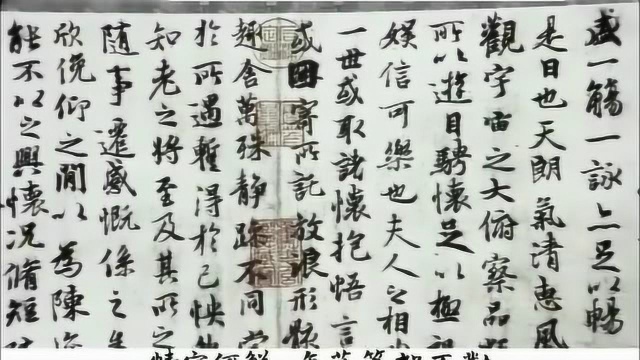 盛一觴一詠亦足以暢
是日也天朗氣清惠風
觀宇宙之大俯察品
所以遊目騁懷足以極視
娛信可樂也夫人之相
一世或取諸懷抱悟言
或因寄所託放浪形骸
趣舍萬殊靜躁不同當
於所遇暫得於己快
知老之將至及其所之
隨事遷感慨係之矣
欣俛仰之間以為陳迹
能不以之興懷況脩短